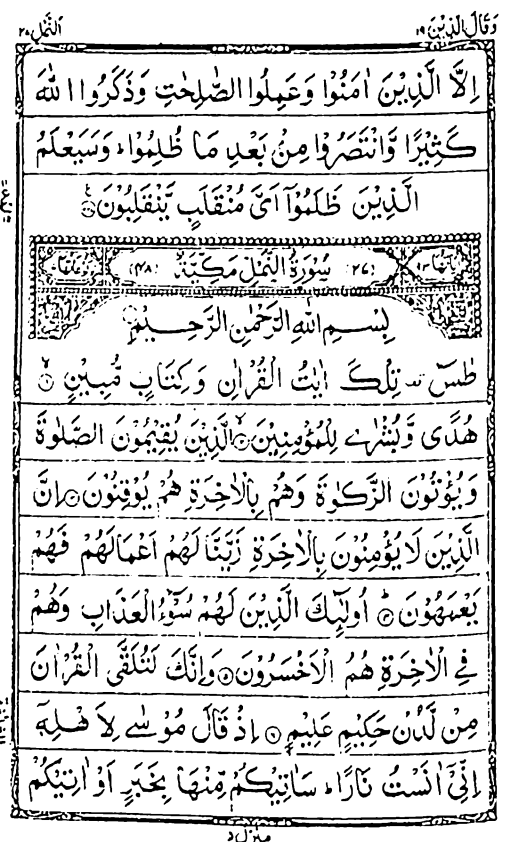 وَقَالَ الَّذِيْنَ ١٩
النَّمْل ٢٧
اِلَّا الَّذِيْنَ اٰمَنُوْا وَعَمِلُوا الصّٰلِحٰتِ وَذَكَرُوا اللّٰهَ
كَثِيْرًا وَّانْتَصَرُوْا مِنْۢ بَعْدِ مَا ظُلِمُوْا ؕ وَسَيَعْلَمُ
الَّذِيْنَ ظَلَمُوْۤا اَىَّ مُنْقَلَبٍ يَّنْقَلِبُوْنَ
سُوْرَةُ النَّمْلِ مَكِّيَّةٌ (٤٨)
بِسْمِ اللّٰهِ الرَّحْمٰنِ الرَّحِيْمِ
طٰسٓ ۚ تِلْكَ اٰيٰتُ الْقُرْاٰنِ وَكِتَابٍ مُّبِيْنٍ ۙ﴿١﴾
هُدًى وَّبُشْرٰى لِلْمُؤْمِنِيْنَ ۙ﴿٢﴾ الَّذِيْنَ يُقِيْمُوْنَ الصَّلٰوةَ
وَيُؤْتُوْنَ الزَّكٰوةَ وَهُمْ بِالْاٰخِرَةِ هُمْ يُوْقِنُوْنَ ﴿٣﴾ اِنَّ
الَّذِيْنَ لَا يُؤْمِنُوْنَ بِالْاٰخِرَةِ زَيَّنَّا لَهُمْ اَعْمَالَهُمْ فَهُمْ
يَعْمَهُوْنَ ؕ﴿٤﴾ اُولٰٓئِكَ الَّذِيْنَ لَهُمْ سُوْٓءُ الْعَذَابِ وَهُمْ
فِى الْاٰخِرَةِ هُمُ الْاَخْسَرُوْنَ ﴿٥﴾ وَاِنَّكَ لَتُلَقَّى الْقُرْاٰنَ
مِنْ لَّدُنْ حَكِيْمٍ عَلِيْمٍ ﴿٦﴾ اِذْ قَالَ مُوْسٰى لِاَهْلِهٖۤ
اِنِّىْۤ اٰنَسْتُ نَارًا ؕ سَاٰتِيْكُمْ مِّنْهَا بِخَبَرٍ اَوْ اٰتِيْكُمْ